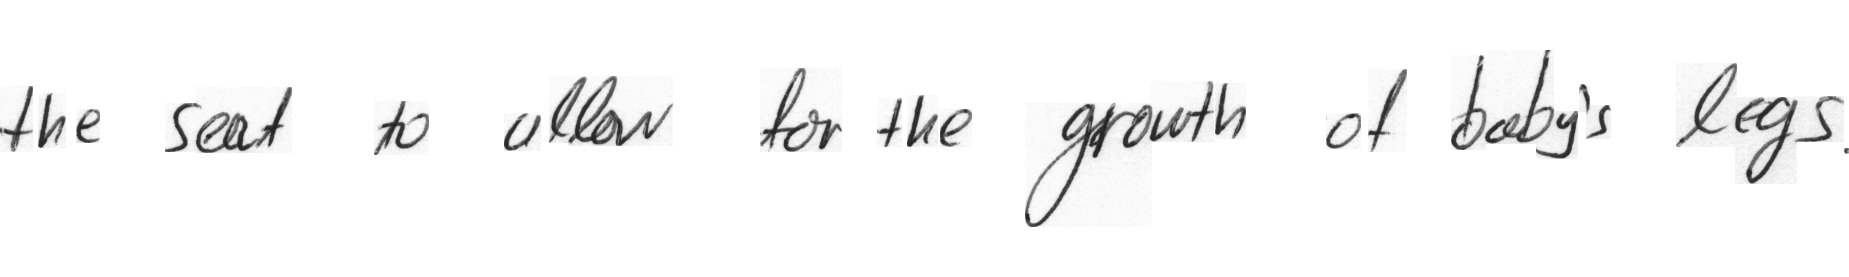 the seat to allow for the growth of baby's legs.